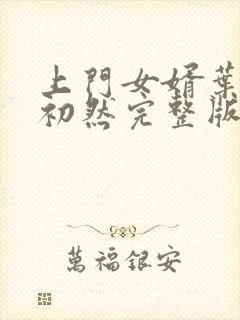 上門女婿葉
初然完整版
萬福銀安